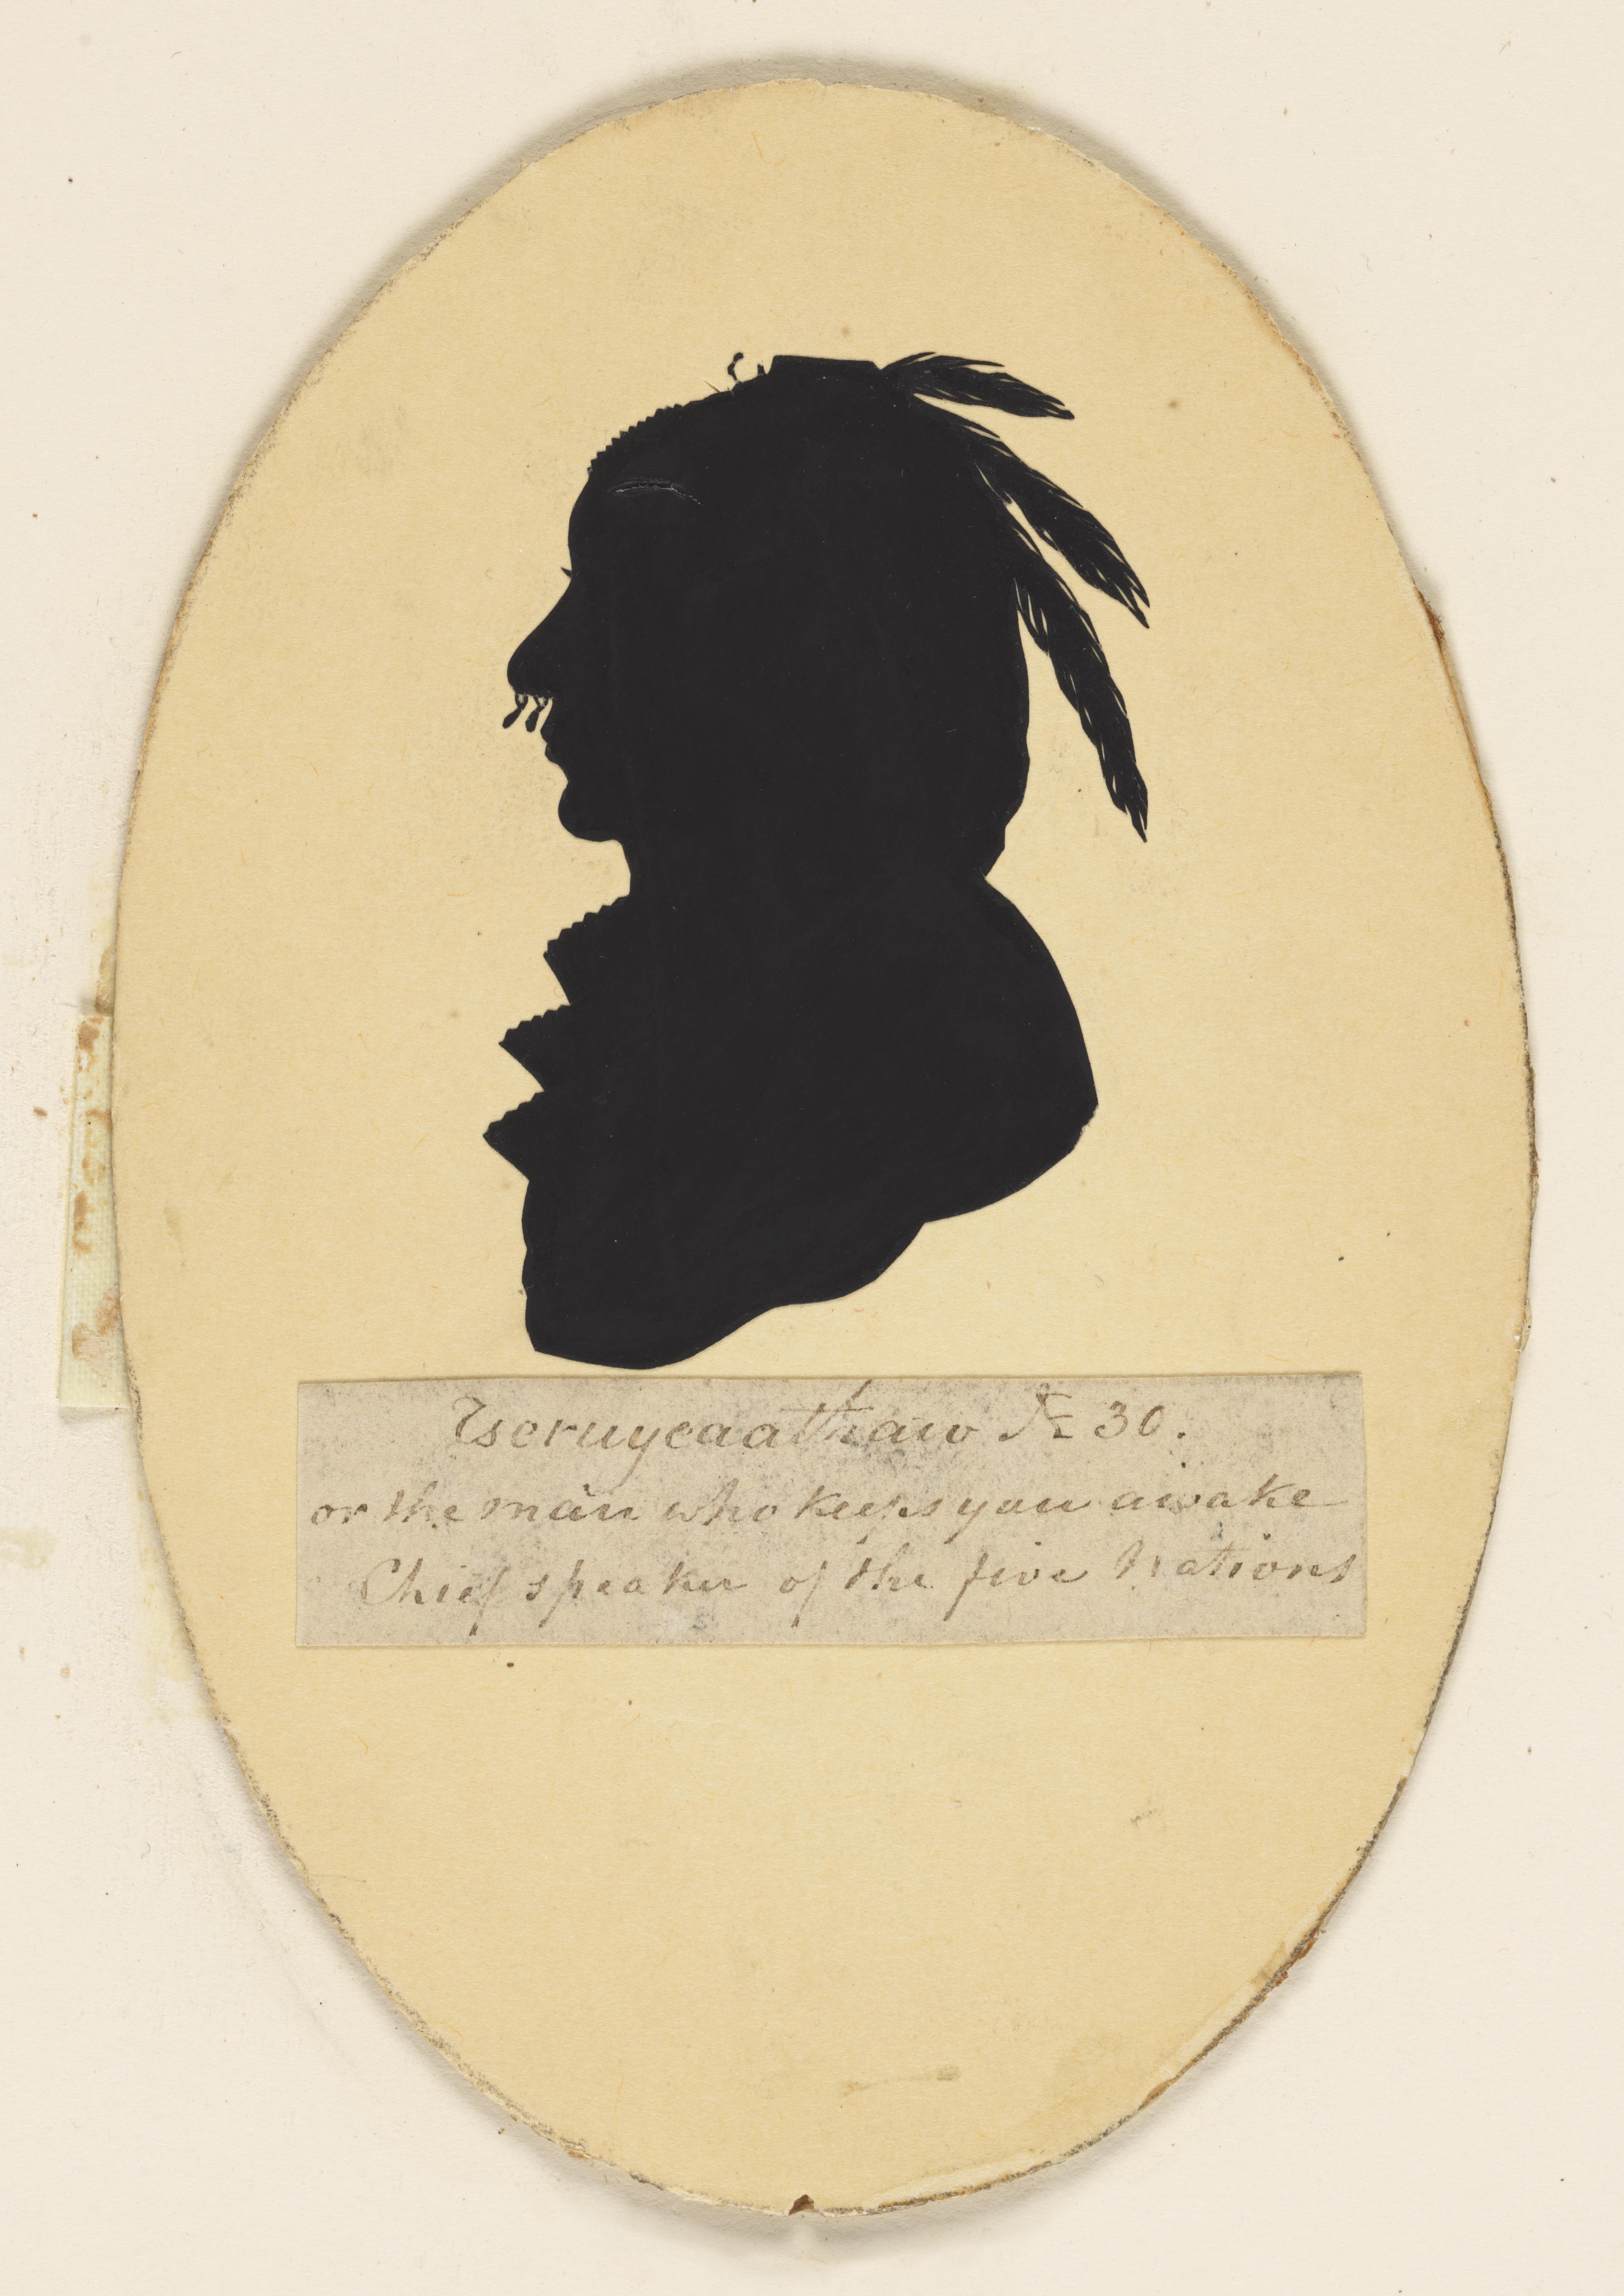 Tseruyeaathaw № 30.
or the man who keeps you awake
Chief speaker of the five Nations